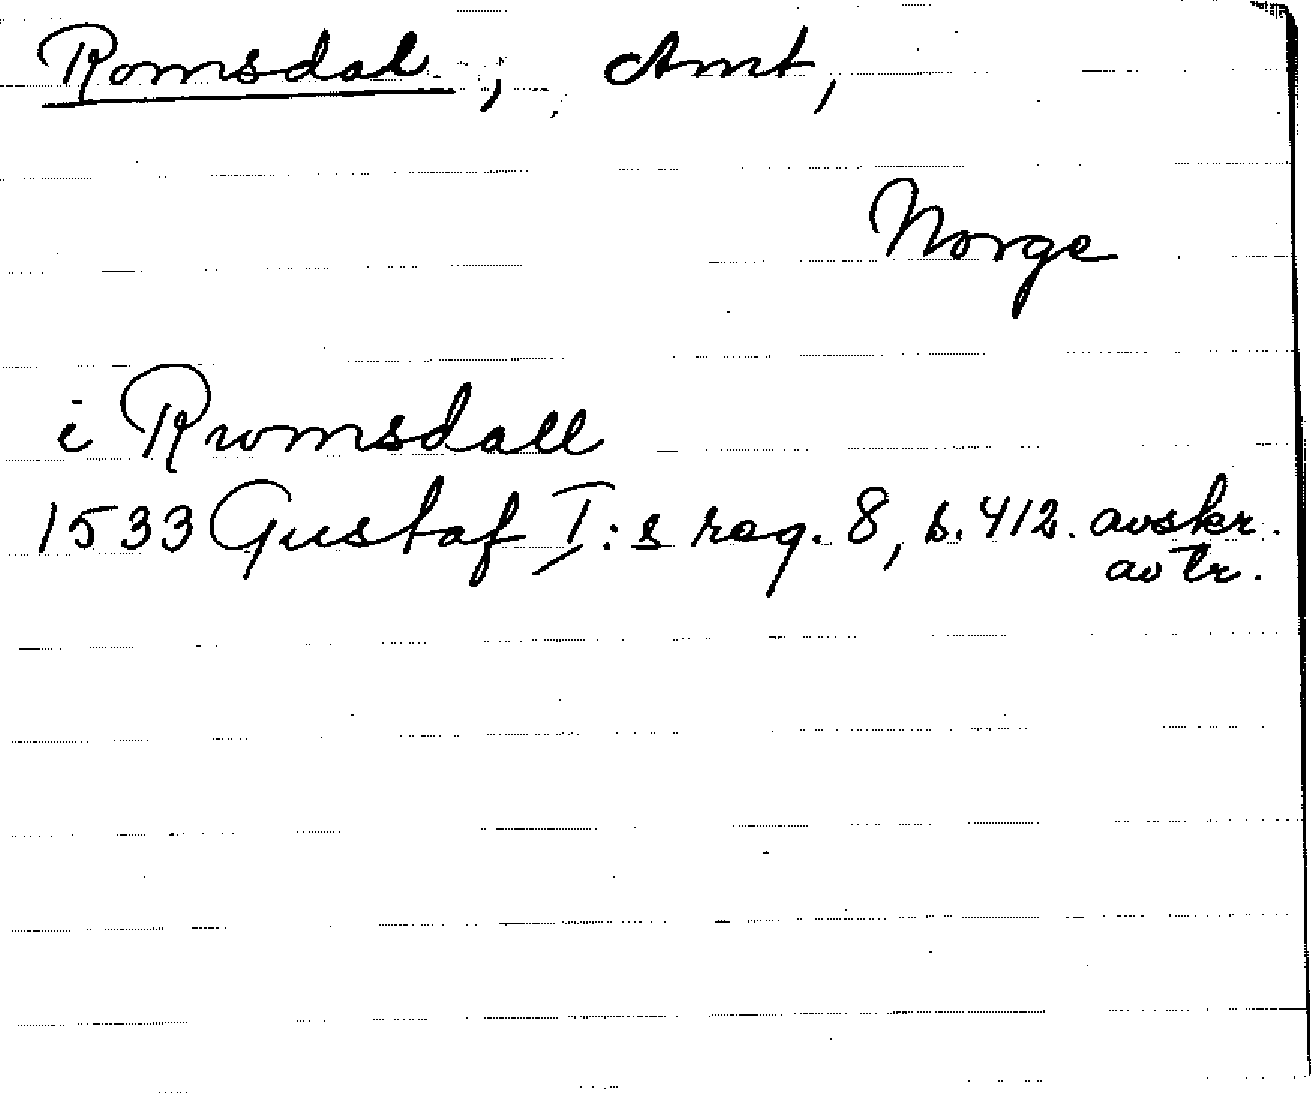 Romsdal, Amt,
Norge
i Rwomsdall
1533 Gustaf I:s reg. 8, s. 412. avskr.
av tr.